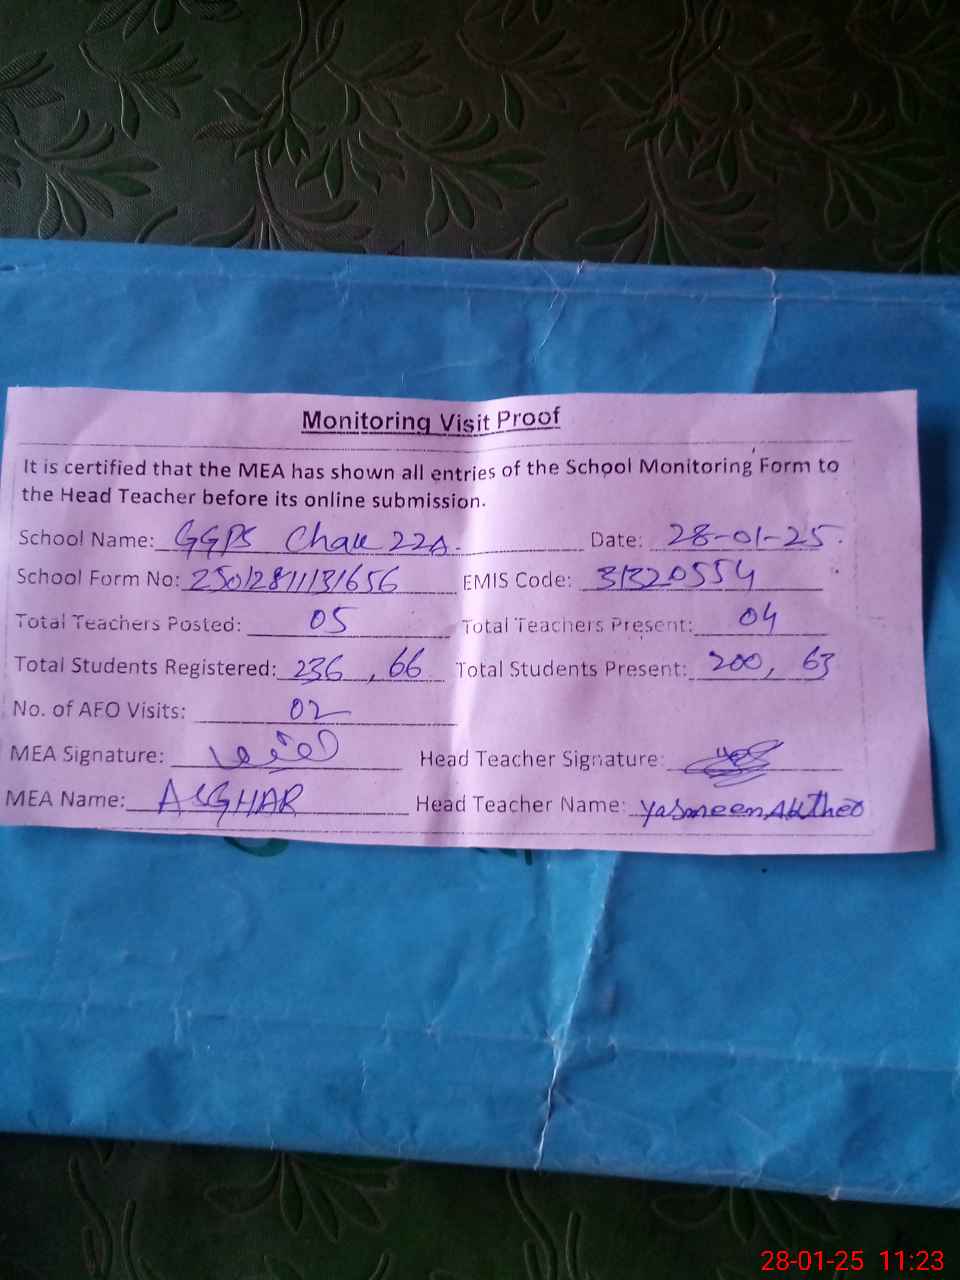 Monitoring Visit Proof
It is certified that the MEA has shown all entries of the School Monitoring Form to
the Head Teacher before its online submission.
School Name: GGPS Chak 22A. Date: 28-01-25.
School Form No: 25012811131656 EMIS Code: 31320554
Total Teachers Posted: 05 Total Teachers Present: 04
Total Students Registered: 236, 66 Total Students Present: 200, 63
No. of AEO Visits: 02
MEA Signature: Head Teacher Signature:
MEA Name: ASGHAR Head Teacher Name: Yasmeen Akther
28-01-25 11:23